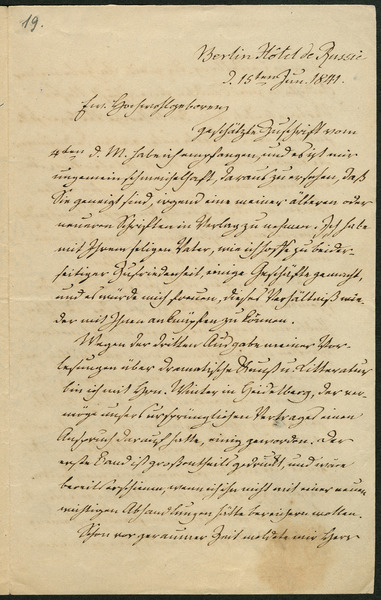 19.
Berlin Hôtel de Russie
d. 15ten Jun. 1841.
Ew. Hochwohlgeboren
geschätzte Zuschrift vom
4ten d. M. habe ich empfangen, und es ist mir
ungemein schmeichelhaft, daraus zu ersehen, daß
Sie geneigt sind, irgend eine meiner älteren oder
neueren Schriften in Verlag zu nehmen. Ich habe
mit Ihrem seligen Vater, wie ich hoffe zu beider-
seitiger Zufriedenheit, einige Geschäfte gemacht,
und es würde mich freuen, dieses Verhältniß wie-
der mit Ihnen anknüpfen zu können.
Wegen der dritten Ausgabe meiner Vor-
lesungen über dramatische Kunst u. Litteratur
bin ich mit Hrn. Winter in Heidelberg, der ver-
möge unsers ursprünglichen Vertrages einen
Anspruch darauf hatte, einig geworden. Der
erste Band ist großentheils gedruckt, und wäre
bereits erschienen, wenn ich ihn nicht mit einer neuen
wichtigen Abhandlungen hätte bereichern wollen.
Schon vor geraumer Zeit meldete mir Herr